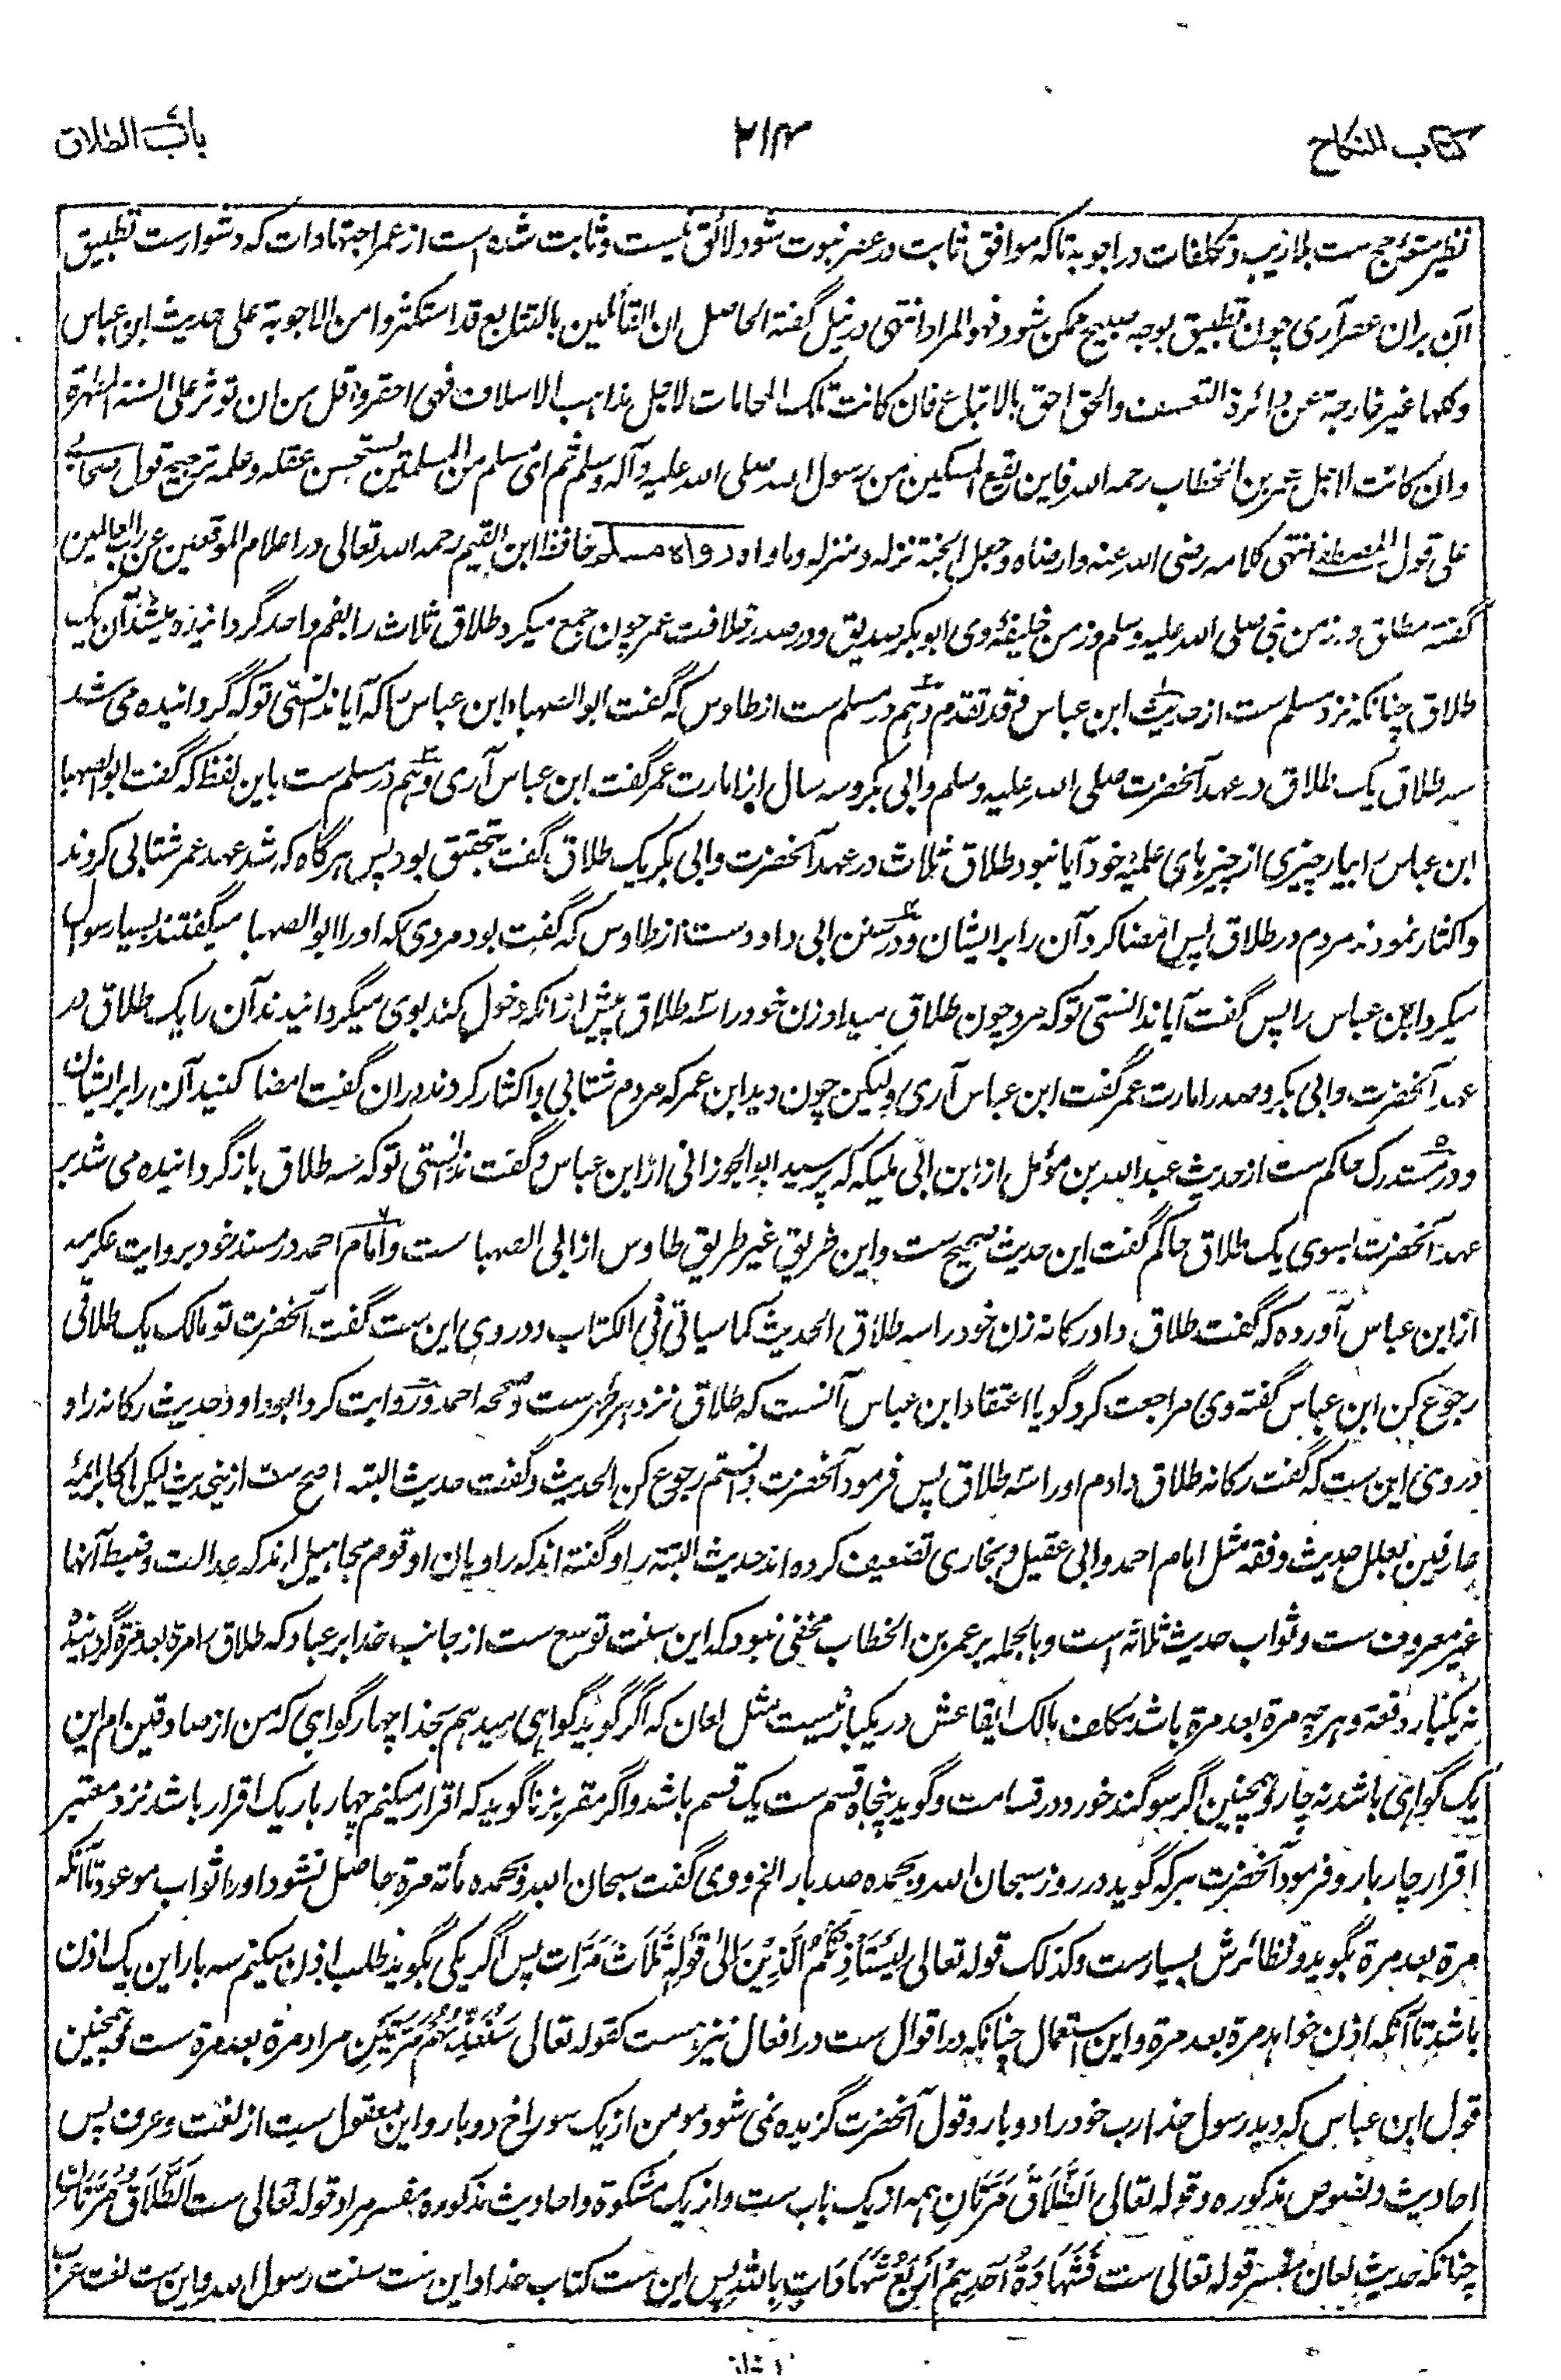 کتاب النکاح
۲۱۴
باب الطلاق
نظیر متوجه ست بلا ریب و تکلفات در اجوبه تا که موافق ثابت در عصر نبوت شود لائق نیست و ثابت شده است از عمر اجتهادات که دشوارست تطبیق
آن بران عصر آری چون تطبیق بوجه صحیح ممکن شود فهو المراد انتهی در نیل گفته الحاصل ان القائلین بالتتابع قد استکثروا من الاجوبة علی حدیث ابن عباس
وکلها غیر خارجة عن دائرة التعسف والحق احق بالاتباع فان کانت تلک المحامات لاجل مذاهب الاسلاف فهی احقر واقل من ان توثر علی السنة المطهرة
وان کانت لاجل عمر بن الخطاب رحمه الله فاین یقع المسکین من رسول الله صلی الله علیه وآله وسلم ثم ای مسلم من المسلمین یستحسن عقله وعلمه ترجیح قول صحابی
علی قول المصطفی انتهی کلامه رضی الله عنه وارضاه وجعل الجنة نزله ومنزله وماواه رواه مسلم حافظ ابن القیم رحمه الله تعالی در اعلام الموقعین عن رب العالمین
گفته مطلق در زمن نبی صلی الله علیه وسلم و زمن خلیفهٔ وی ابوبکر صدیق و در صدر خلافت عمر چون جمع میکرد طلاق ثلاث را بفم واحد گردانیده میشد آن یک
طلاق چنانکه نزد مسلم ست از حدیث ابن عباس وقد تقدم و هم در مسلم ست از طاوس که گفت ابو الصهباء ابن عباس را که آیا ندانستی تو که گردانیده می شد
سه طلاق یک طلاق در عهد آنحضرت صلی الله علیه وسلم وابی بکر و سه سال از امارت عمر گفت ابن عباس آری و هم در مسلم ست باین لفظ که گفت ابو الصهبا
ابن عباس را بیار چیزی از چیزهای علمیهٔ خود آیا نبود طلاق ثلاث در عهد آنحضرت وابی بکر یک طلاق گفت تحقیق بود پس هرگاه که شد عهد عمر شتابی کردند
واکثار نمودند مردم در طلاق پس امضا کرد آن را بر ایشان و در سنن ابی داود ست از طاوس که گفت بود مردی که او را ابو الصهبا میگفتند بسیار سوال
میکرد ابن عباس را پس گفت آیا ندانستی تو که مرد چون طلاق میداد زن خود را سه طلاق پیش ازانکه دخول کند بوی میگردانیدند آن را یک طلاق در
عهد آنحضرت وابی بکر و صدر امارت عمر گفت ابن عباس آری ولیکن چون دید ابن عمر که مردم شتابی واکثار کردند دران گفت امضا کنید آن را بر ایشان
و در مستدرک حاکم ست از حدیث عبد الله بن مؤمل از ابن ابی ملیکه که پرسید ابو الجوزا نی از ابن عباس و گفت ندانستی تو که سه طلاق بازگردانیده می شد بر
عهد آنحضرت بسوی یک طلاق حاکم گفت این حدیث صحیح ست و این طریق غیر طریق طاوس از ابی الصهبا ست و امام احمد در مسند خود بروایت عکرمه
از ابن عباس آورده که گفت طلاق داد رکانه زن خود را سه طلاق الحدیث کما سیاتی فی الکتاب و در وی این ست گفت آنحضرت تو مالک یک طلاقی
رجوع کن ابن عباس گفته وی مراجعت کرد گویا اعتقاد ابن عباس آنست که طلاق نزد هر طهرست وصححه احمد و روایت کرد ابو داود حدیث رکانه را و
در وی این ست که گفت رکانه طلاق دادم او را سه طلاق پس فرمود آنحضرت دانستم رجوع کن الحدیث و گفت حدیث البته اصح ست ازین حدیث لیکن اکابر ائمه
عارفین بعلل حدیث و فقه مثل امام احمد وابی عقیل و بخاری تضعیف کرده اند حدیث البته را و گفته اند که راویان او قوم مجاهیل اند که عدالت و ضبط آنها
غیر معروف ست و ثواب حدیث ثلاثه است و بالجمله بر عمر بن الخطاب مخفی نبود که این سنت توسع ست از جانب خدا بر عباد که طلاق را مرة بعد مرة گردانیده
نه یکبار دفعة و هرچه مرة بعد مرة باشد مکلف مالک ایقاعش در یکبار نیست مثل لعان که اگر گوید گواهی میدهم بخدا چهار گواهی که من از صادقین ام این
یک گواهی باشد نه چار و همچنین اگر سوگند خورد در قسامت و گوید پنجاه قسم ست یک قسم باشد و اگر مقر بزنا گوید که اقرار میکنم چهار بار یک اقرار باشد نزد معتبر
اقرار چار بار و فرمود آنحضرت هرکه گوید در روز سبحان الله وبحمده صد بار الخ و وی گفت سبحان الله وبحمده مأته مرة حاصل نشود او را ثواب موعود تا آنکه
مرة بعد مرة بگوید و نظائرش بسیارست وکذلک قوله تعالی لِیَسْتَأْذِنْکُمُ الَّذِیْنَ اِلیٰ قَوْلِهٖ ثَلَاثَ مَرَّاتٍ پس اگر یکی بگوید طلب اذن میکنم سه بار این یک اذن
باشد تا آنکه اذن خواهد مرة بعد مرة و این استعمال چنانکه در اقوال ست در افعال نیز هست کقوله تعالی سَنُعَذِّبُهُمْ مَرَّتَیْنِ مراد مرة بعد مرة ست و همچنین
قول ابن عباس که دید رسول خدا رب خود را دو بار و قول آنحضرت گزیده نمی شود مومن از یک سوراخ دو بار و این معقول ست از لغت و عرف پس
احادیث و نصوص مذکوره و قوله تعالی اَلطَّلَاقُ مَرَّتَانِ همه از یک باب ست و از یک مشکوة و احادیث مذکوره مفسر مراد قوله تعالی ست اَلطَّلَاقُ مَرَّتَانِ
چنانکه حدیث لعان مفسر قوله تعالی ست فَشَهَادَةُ اَحَدِهِمْ اَرْبَعُ شَهَادَاتٍ بِاللهِ پس این ست کتاب خدا و این ست سنت رسول الله و این ست لغت عرب